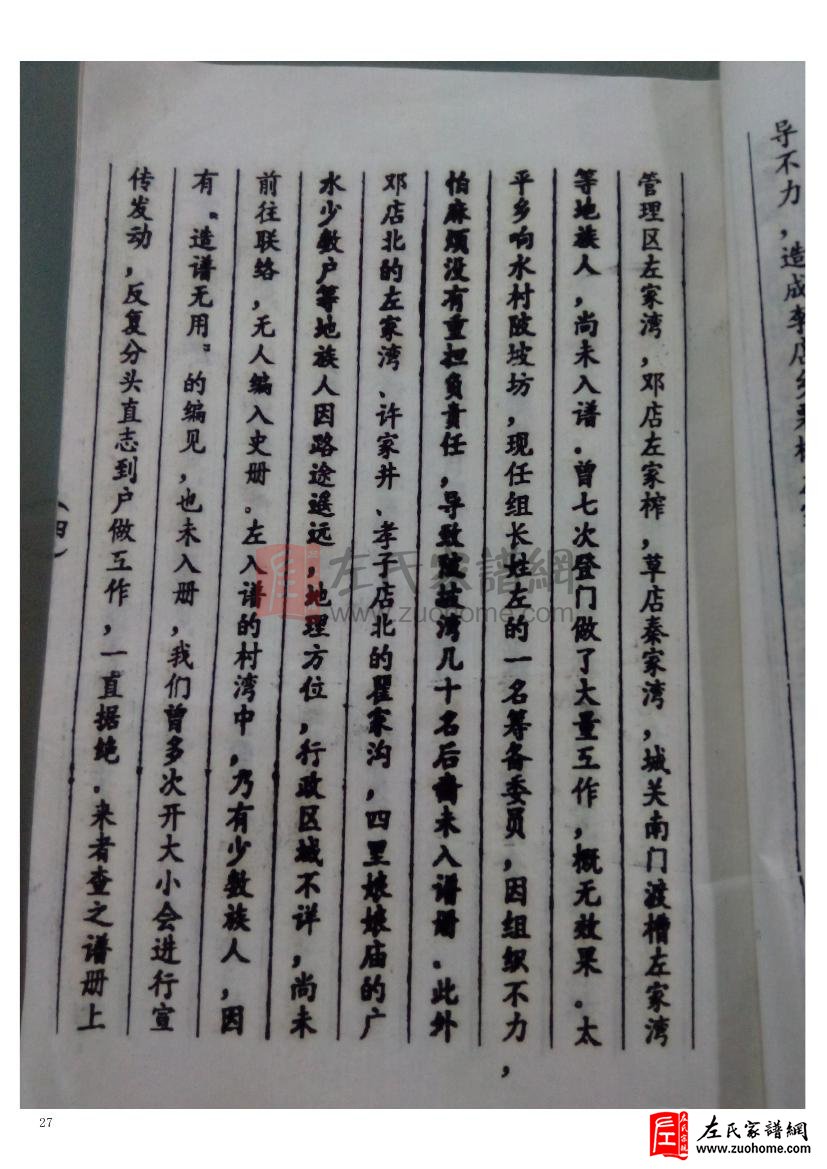 导不力，造成李店乡
管理区左家湾，邓店左家榨，草店秦家湾，城关南门渡槽左家湾
等地族人，尚未入谱．曾七次登门做了大量工作，概无效果。太
平乡响水村陂坡坊，现任组长姓左的一名筹备委员，因组织不力，
怕麻烦没有重担负责任，导致陂坡湾几十名后裔未入谱册．此外
邓店北的左家湾、许家井、孝子店北的瞿家沟，四里娘娘庙的广
水少数户等地族人因路途遥远，地理方位，行政区域不详，尚未
前往联络，无人编入史册。左入谱的村湾中，乃有少数族人，因
有“造谱无用”的编见，也未入册，我们曾多次开大小会进行宣
传发动，反复分头直志到户做工作，一直据绝．来者查之谱册上
（四）
左氏家譜網
www.zuohome.com
27
左氏家譜網
www.zuohome.com